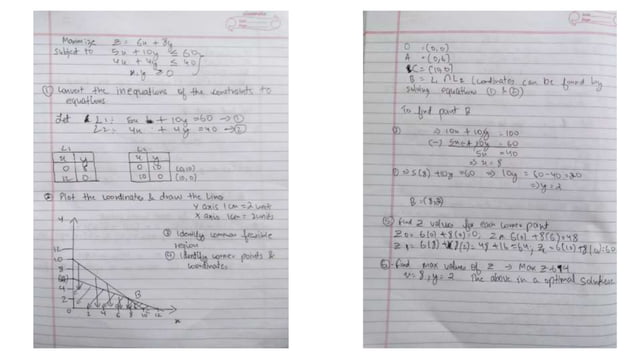 Maximize Z = 6x + 8y
Subject to 5x + 10y ≤ 60
4x + 4y ≤ 40
x, y ≥ 0
① Convert the inequations of the constraints to
equations
Let L1: 5x + 10y = 60 → ①
L2: 4x + 4y = 40 → ②
L1 L2
x y x y
0 6 0 10 (0,10)
12 0 10 0 (10,0)
② Plot the coordinates & draw the line
Y axis 1cm = 2 unit
X axis 1cm = 2 units
③ Identify common feasible
region
④ Identify corner points &
coordinates
Y
12
10
8
4
2
B
0 2 4 6 8 10 12 x
O = (0,0)
A = (0,6)
C = (10,0)
B = L1 ∩ L2 (coordinates can be found by
solving equations ① & ②)
To find point B
② ⇒ 10x + 10y = 100
(-) 5x + 10y = 60
5x = 40
⇒ x = 8
① ⇒ 5(8) + 10y = 60 ⇒ 10y = 60 - 40 = 20
⇒ y = 2
B = (8,2)
⑤ Find Z values for each corner point
Z0 = 6(0) + 8(0) = 0, ZA = 6(0) + 8(6) = 48
ZB = 6(8) + 8(2) = 48 + 16 = 64, Zc = 6(10) + 8(0) = 60
⑥ find max value of Z → Max Z =
x = 8, y = 2 The above is a optimal solution